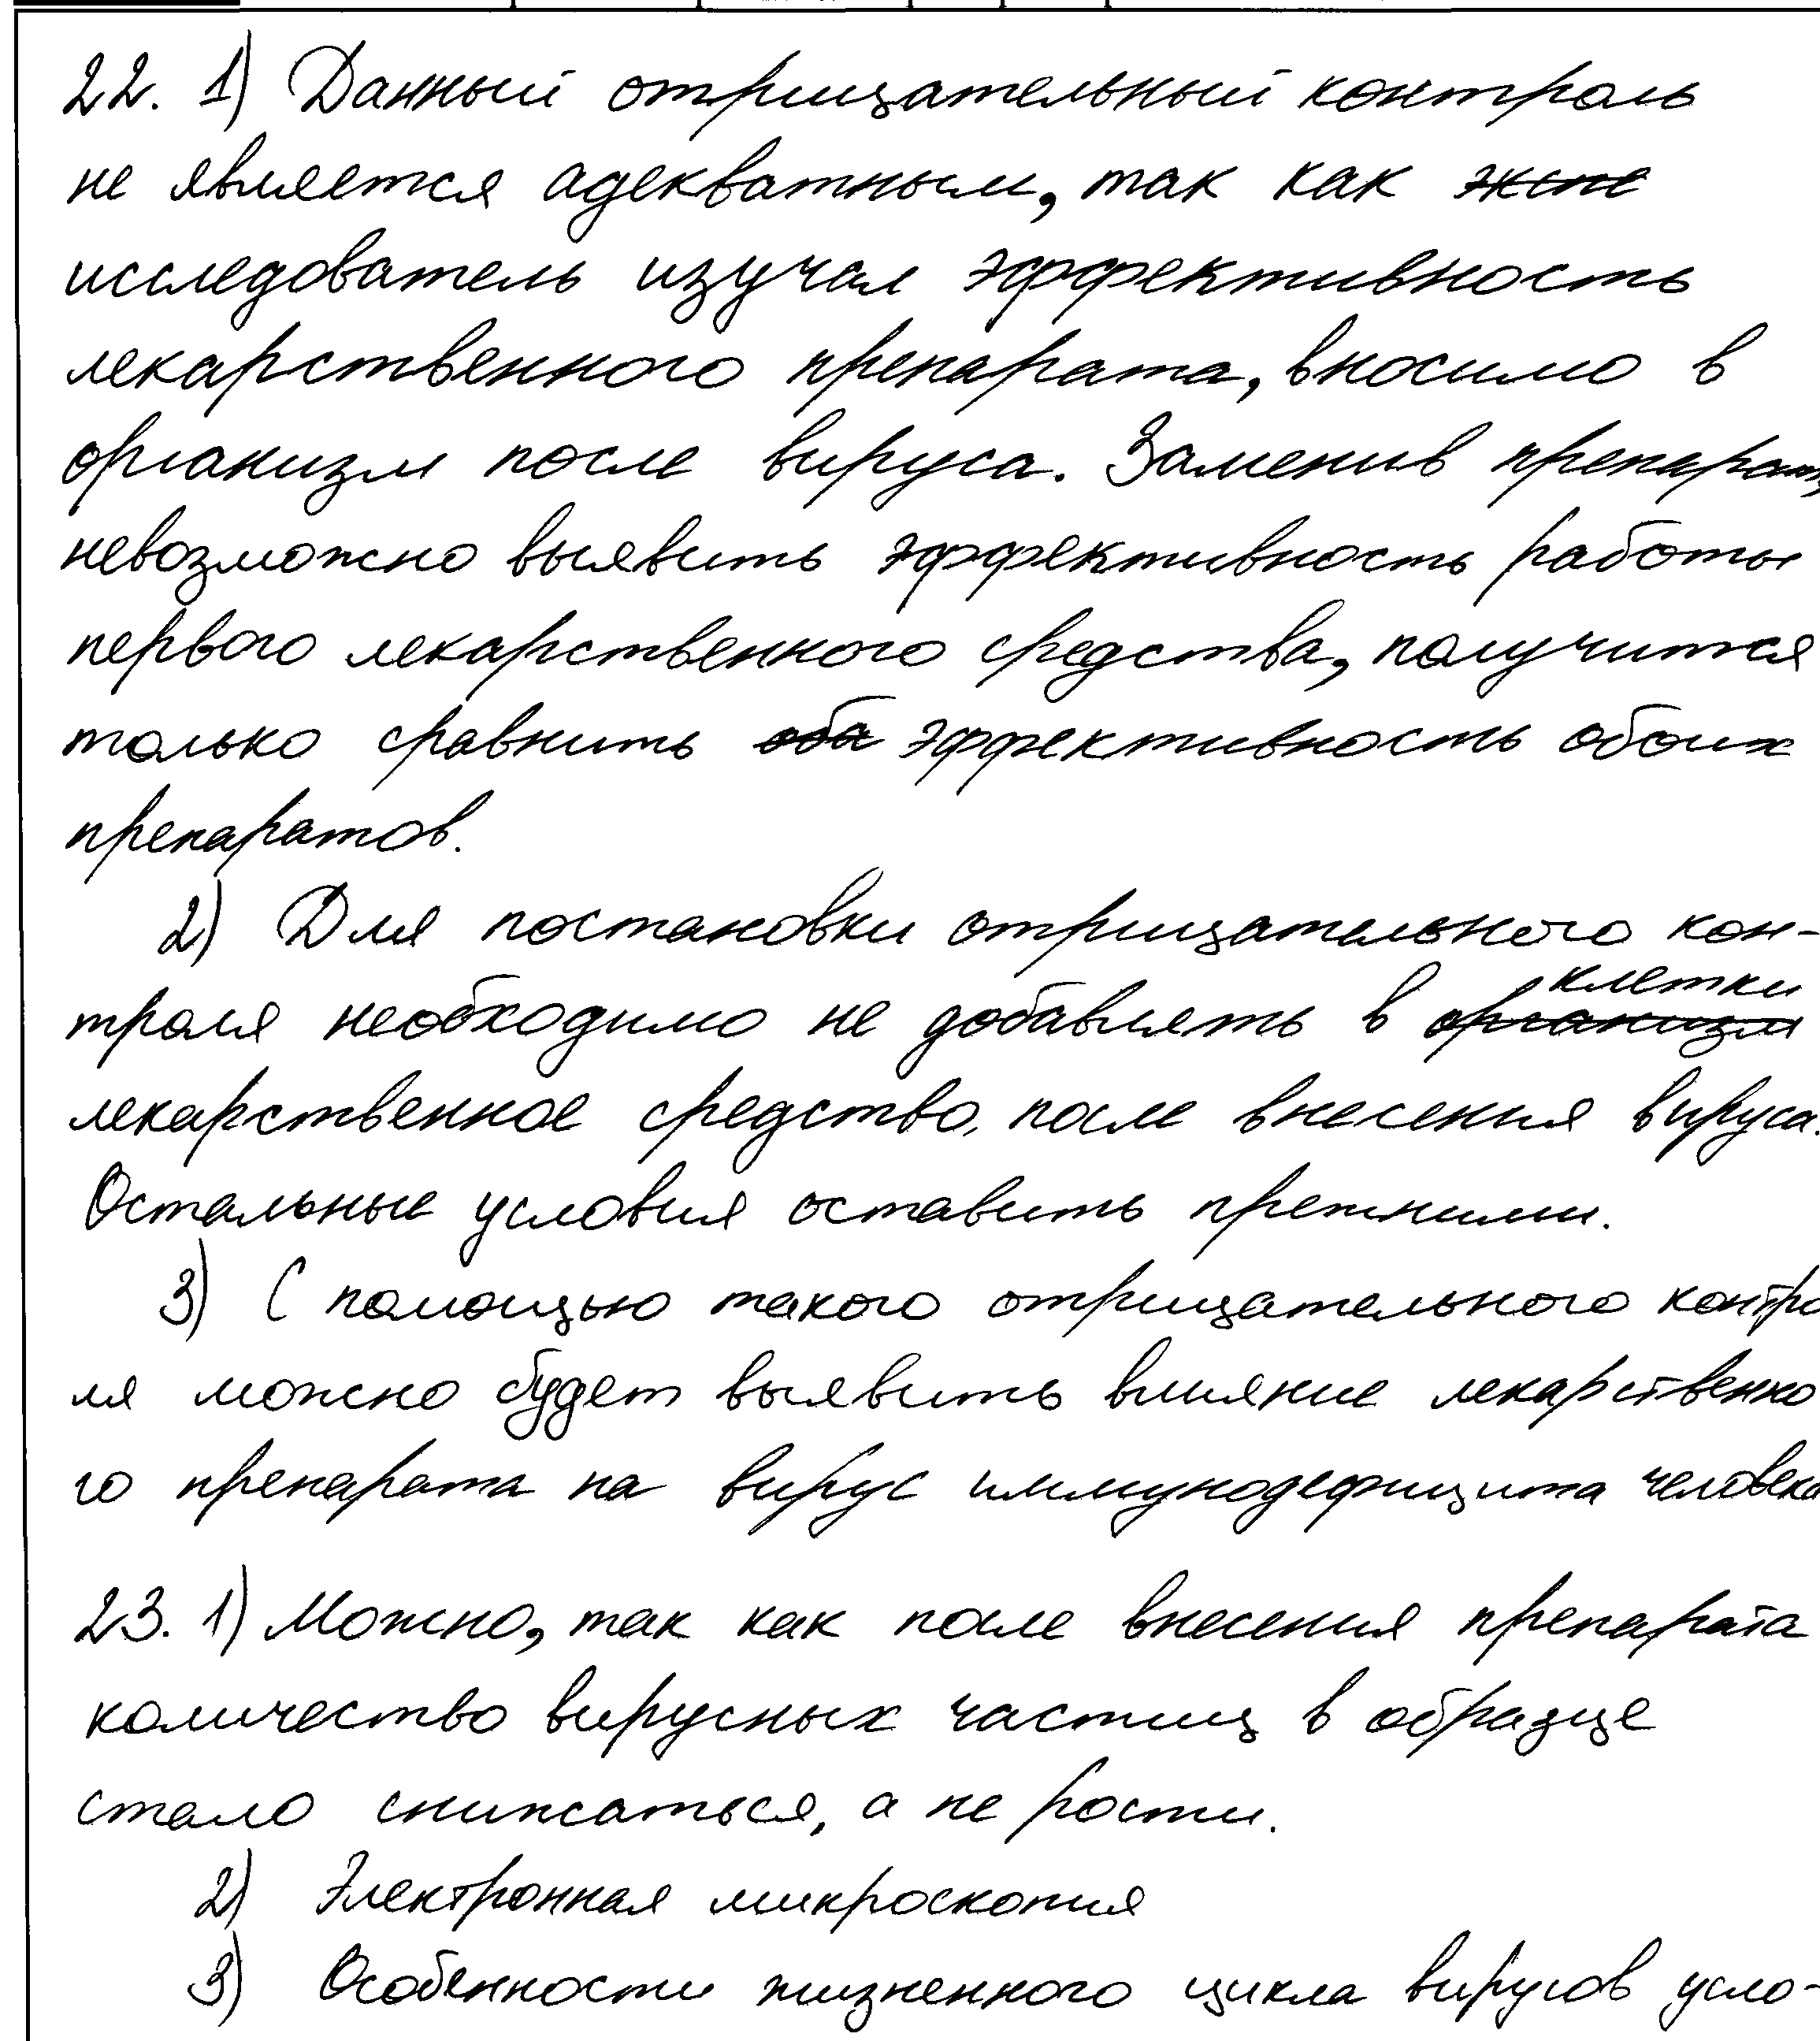 22. 1) Данный отрицательный контроль
не является адекватным, так как ~~экспе~~
исследователь изучал эффективность
лекарственного препарата, вносимо в
организм после вируса. Заменив препарат,
невозможно выявить эффективность работы
первого лекарственного средства, получится
только сравнить ~~оба~~ эффективность обоих
препаратов.
2) Для постановки отрицательного кон-
троля необходимо не добавлять в ~~организм~~ клетки
лекарственное средство, после внесения вируса.
Остальные условия оставить прежними.
3) С помощью такого отрицательного контро
ля можно будет выявить влияние лекарственно
го препарата на вирус иммунодефицита человека
23. 1) Можно, так как после внесения препарата
количество вирусных частиц в образце
стало снижаться, а не рости.
2) Электронная микроскопия
3) Особенности жизненного цикла вирусов усло-